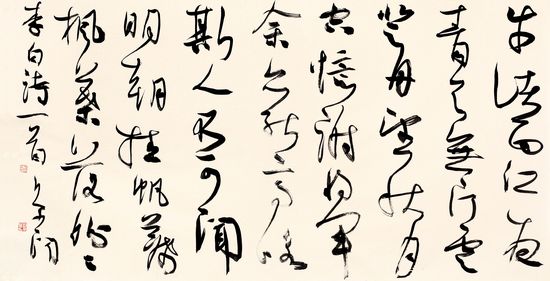 牛渚西江夜
青天無片雲
登舟望秋月
空憶謝將軍
余亦能高詠
斯人不可聞
明朝挂帆席
楓葉落紛紛
李白詩一首